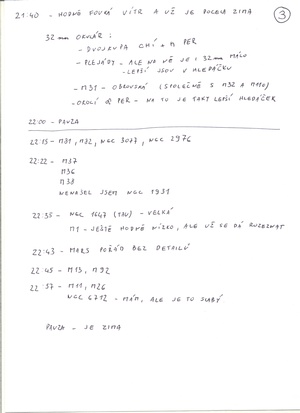 21:40 - HODNĚ FOUKÁ VÍTR A UŽ JE DOCELA ZIMA
3
32 mm OKULÁR:
- DVOJKUPA CHÍ A H PER
- PLEJÁDY - ALE NA VĚ JE I 32mm MÁLO
- LEPŠÍ JSOU V HLEDÁČKU
- M31 - OBROVSKÁ (SPOLEČNĚ S M32 A M110)
- OKOLÍ α PER - NA TO JE TAKY LEPŠÍ HLEDÁČEK
22:00 - PAUZA
22:15 - M81, M82, NGC 3077, NGC 2976
22:22 - M37
M36
M38
NENAŠEL JSEM NGC 1931
22:35 - NGC 1647 (TAU) - VELKÁ
M1 - JEŠTĚ HODNĚ NÍZKO, ALE UŽ SE DÁ ROZEZNAT
22:43 - MARS POŘÁD BEZ DETAILŮ
22:45 - M13, M92
22:57 - M11, M26
NGC 6712 - MÁM, ALE JE TO SLABÝ
PAUZA - JE ZIMA